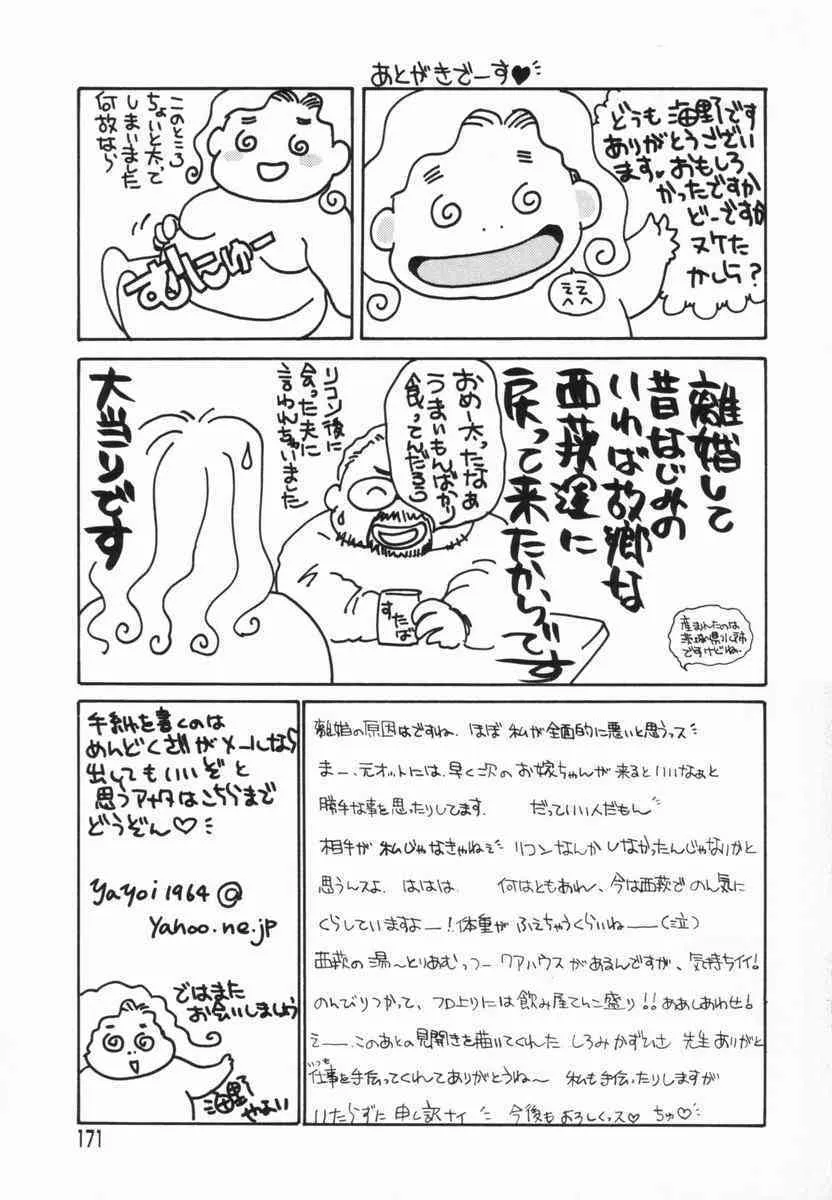 あとがきでーす♥
どうも海野です
ありがとうござい
ます♥おもしろ
かったですか
どーですか
ヌケた
かしら?
ええ
このところ
ちょいと太って
しまいました
何故なら
むにゅー
離婚して
昔なじみの
いわば故郷な
西荻窪に
戻って来たからです
産まれたのは
ですけどね。
おめー太ったなあ
うまいもんばかり
食ってんだろう
すたば
リコン後に
会った夫に
言われちゃいました
大当りです
離婚の原因はですね、ほぼ私が全面的に悪いと思うっス
まー、元オットには、早く次のお嫁ちゃんが来るといいなぁと
勝手な事を思ったりしてます。 だっていい人だもん
相手が私じゃなきゃねぇ リコンなんかしなかったんじゃないかと
思うんスよ、ははは 何はともあれ、今は西荻でのん気に
くらしていますよー!体重がふえちゃうくらいね――(泣)
西荻の湯〜とりあむっつークアハウスがあるんですが、気持ちイイ!
のんびりつかって、フロ上りには飲み屋てんこ盛り!!ああしあわせ!
えー、このあとの見開きを描いてくれたしろみかずひさ先生ありがと
いつも
仕事を手伝ってくれてありがとうね〜 私も手伝ったりしますが
いたらずに申し訳ナイ 今後もよろしくっス♡ ちゅ♡
手紙を書くのは
めんどくさいがメールなら
出してもいいぞと
思うアナタはこちらまで
どうぞん♡
yayoi1964@
yahoo.ne.jp
ではまた
お会いしましょう
海野
やよい
171